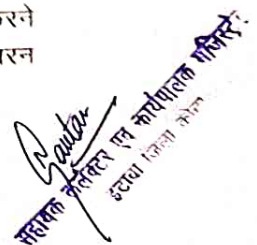 करने
रन
Gautam
सहायक कलेक्टर एवं कार्यपालक मजिस्ट्रेट
इटावा जिला कोटा